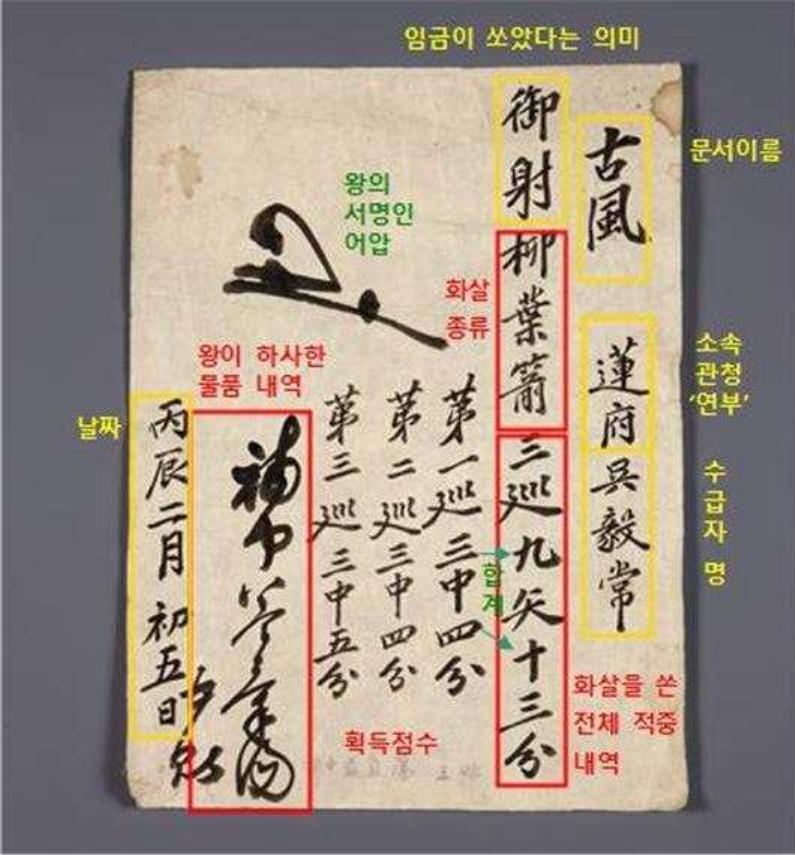 임금이 쏘았다는 의미
문서이름
古風
소속
관청
'연부'
수급자 명
蓮府吳毅常
御射柳葉箭三巡九矢十三分
화살
종류
합계
화살을 쏜
전체 적중
내역
왕의
서명인
어압
第一巡三中四分
第二巡三中四分
第三巡三中五分
획득점수
왕이 하사한
물품 내역
날짜
丙辰二月初五日